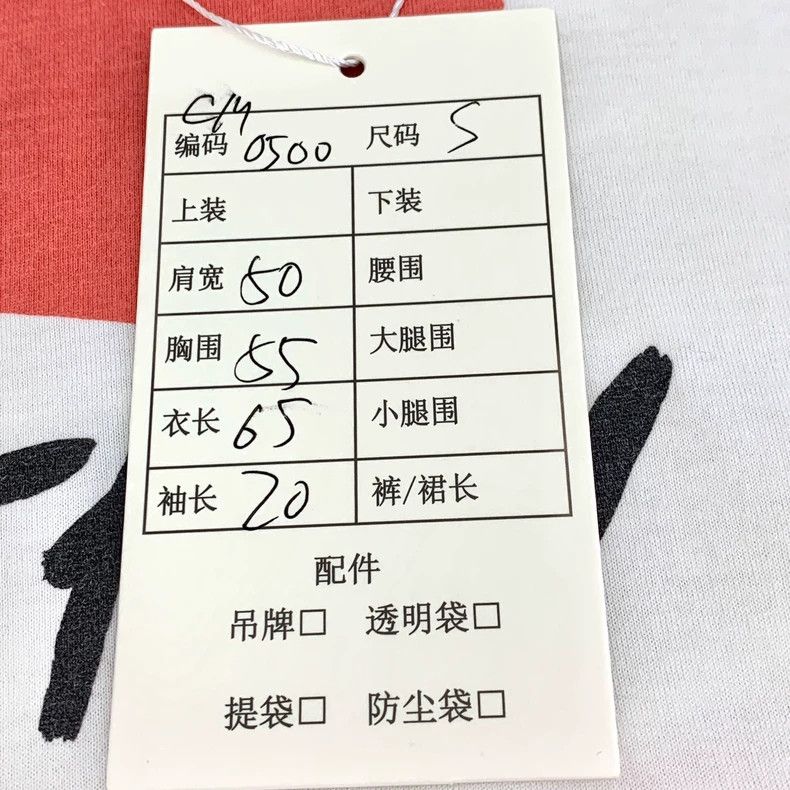 编码 0500 尺码 S
上装 下装
肩宽 50 腰围
胸围 55 大腿围
衣长 65 小腿围
袖长 20 裤/裙长
配件
吊牌□ 透明袋□
提袋□ 防尘袋□